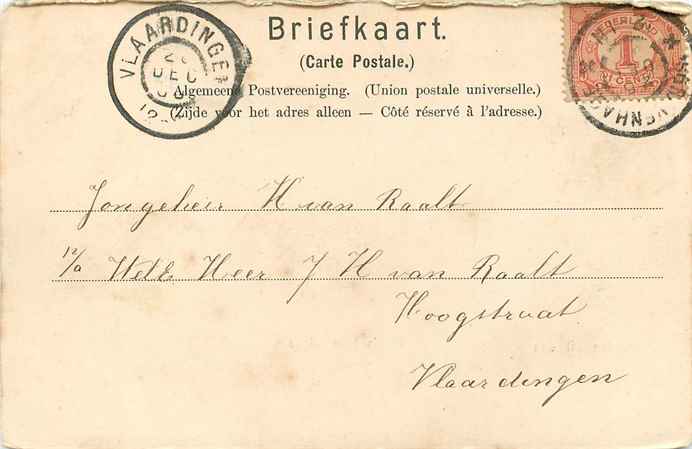 Briefkaart.
(Carte Postale.)
Algemeene Postvereeniging. (Union postale universelle.)
(Zijde voor het adres alleen — Côté réservé à l'adresse.)
VLAARDINGEN
DEC
NEDERLAND
1
Jongeheer H van Raalt
WelE Heer J H van Raalt
Hoogstraat
Vlaardingen